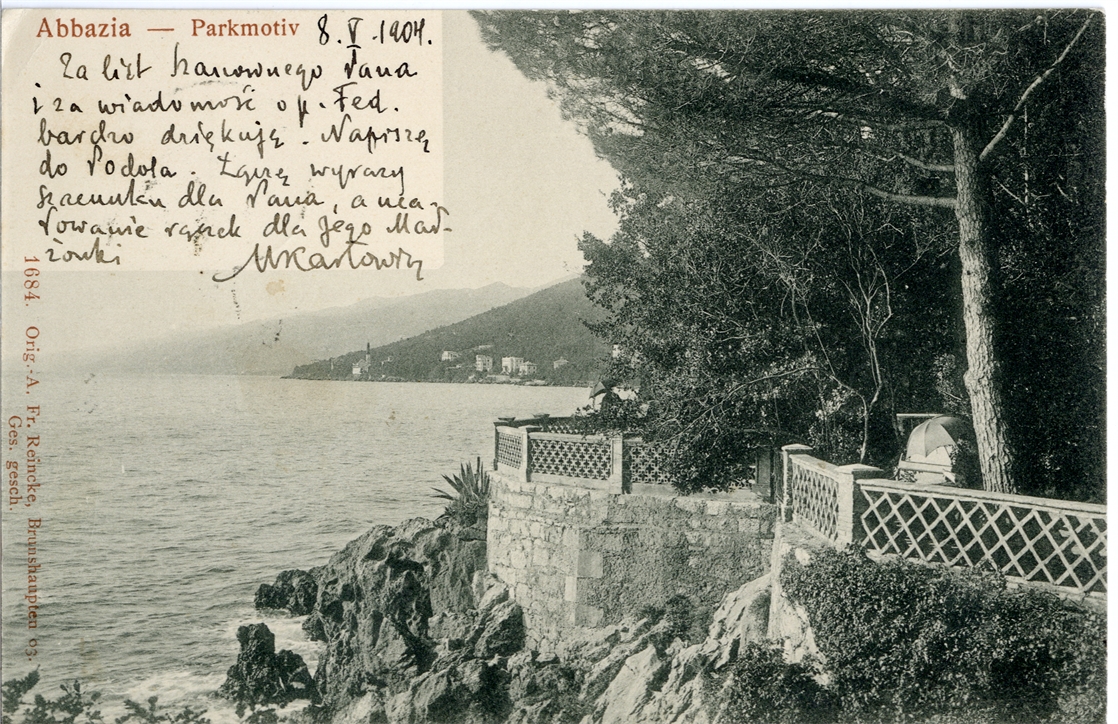 Abbazia — Parkmotiv 8. V. 1904.
Za list Szanownego Pana
i za wiadomość o p. Fed.
bardzo dziękuję. Napiszę
do Podola. Łączę wyrazy
szacunku dla Pana, a uca-
łowanie rączek dla Jego Mał-
żonki
1684. Orig.-A. Fr. Reincke, Brunshaupten 03.
Ges. gesch.